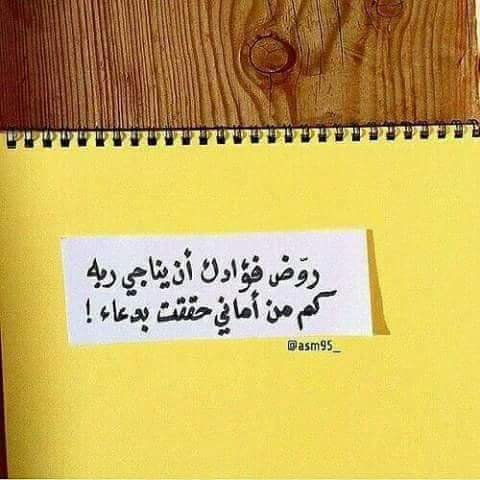 روّض فؤادك أن يناجي ربه
كم من أماني حققت بدعاء !
@asm95_